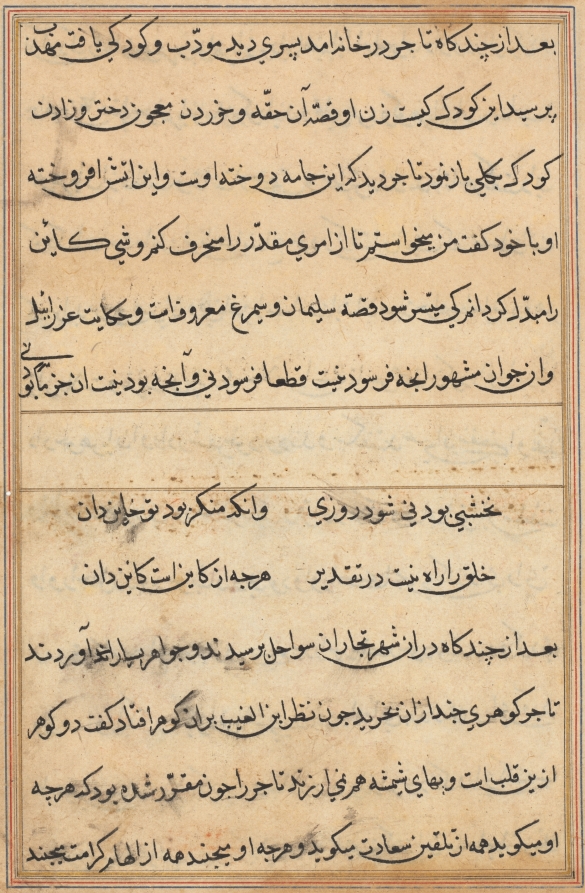 بعد از چندکاه تاجر در خانه امد پسری دید مودّب و کودکی یافت مهذب
پرسید این کودک کیست زن او قصّه آن حقّه و خوردن معجون دختر و زادن
کودک بکلی باز نمود تاجر دید که این جامه دوخته اوست و این اتش افروخته
او با خود کفت من میخواستم تا از امری مقدّر را منحرف کنم و شی کاین
را مبدّل کردانم کی میّسر شود قصّه سلیمان و سیمرغ معروفست و حکایت عزرائیل
و ان جوان مشهور انچه فرسودنیست قطعا فرسودنی و آنچه بودنیست ان جز ما
نخشبی بودنی شود روزی وانکه منکر بود تو خاین دان
خلق را راه نیست در تقدیر هرچه از کاین است کاین دان
بعد از چندکاه دران شهر تجاران سواحل برسیدند و جواهر بسیار آوردند
تاجر کوهری چند ازان بخرید چون نظر ابن الغیب بران کوهر افتاد کفت دو کوهر
ازین قلب است و بهای شیشه هم نمی ارزند تاجر را چون مقرّر شده بود که هرچه
او میکوید همه از تلقین سعادت میکوید و هرچه او میجنده همه از الهام کرامت میجند